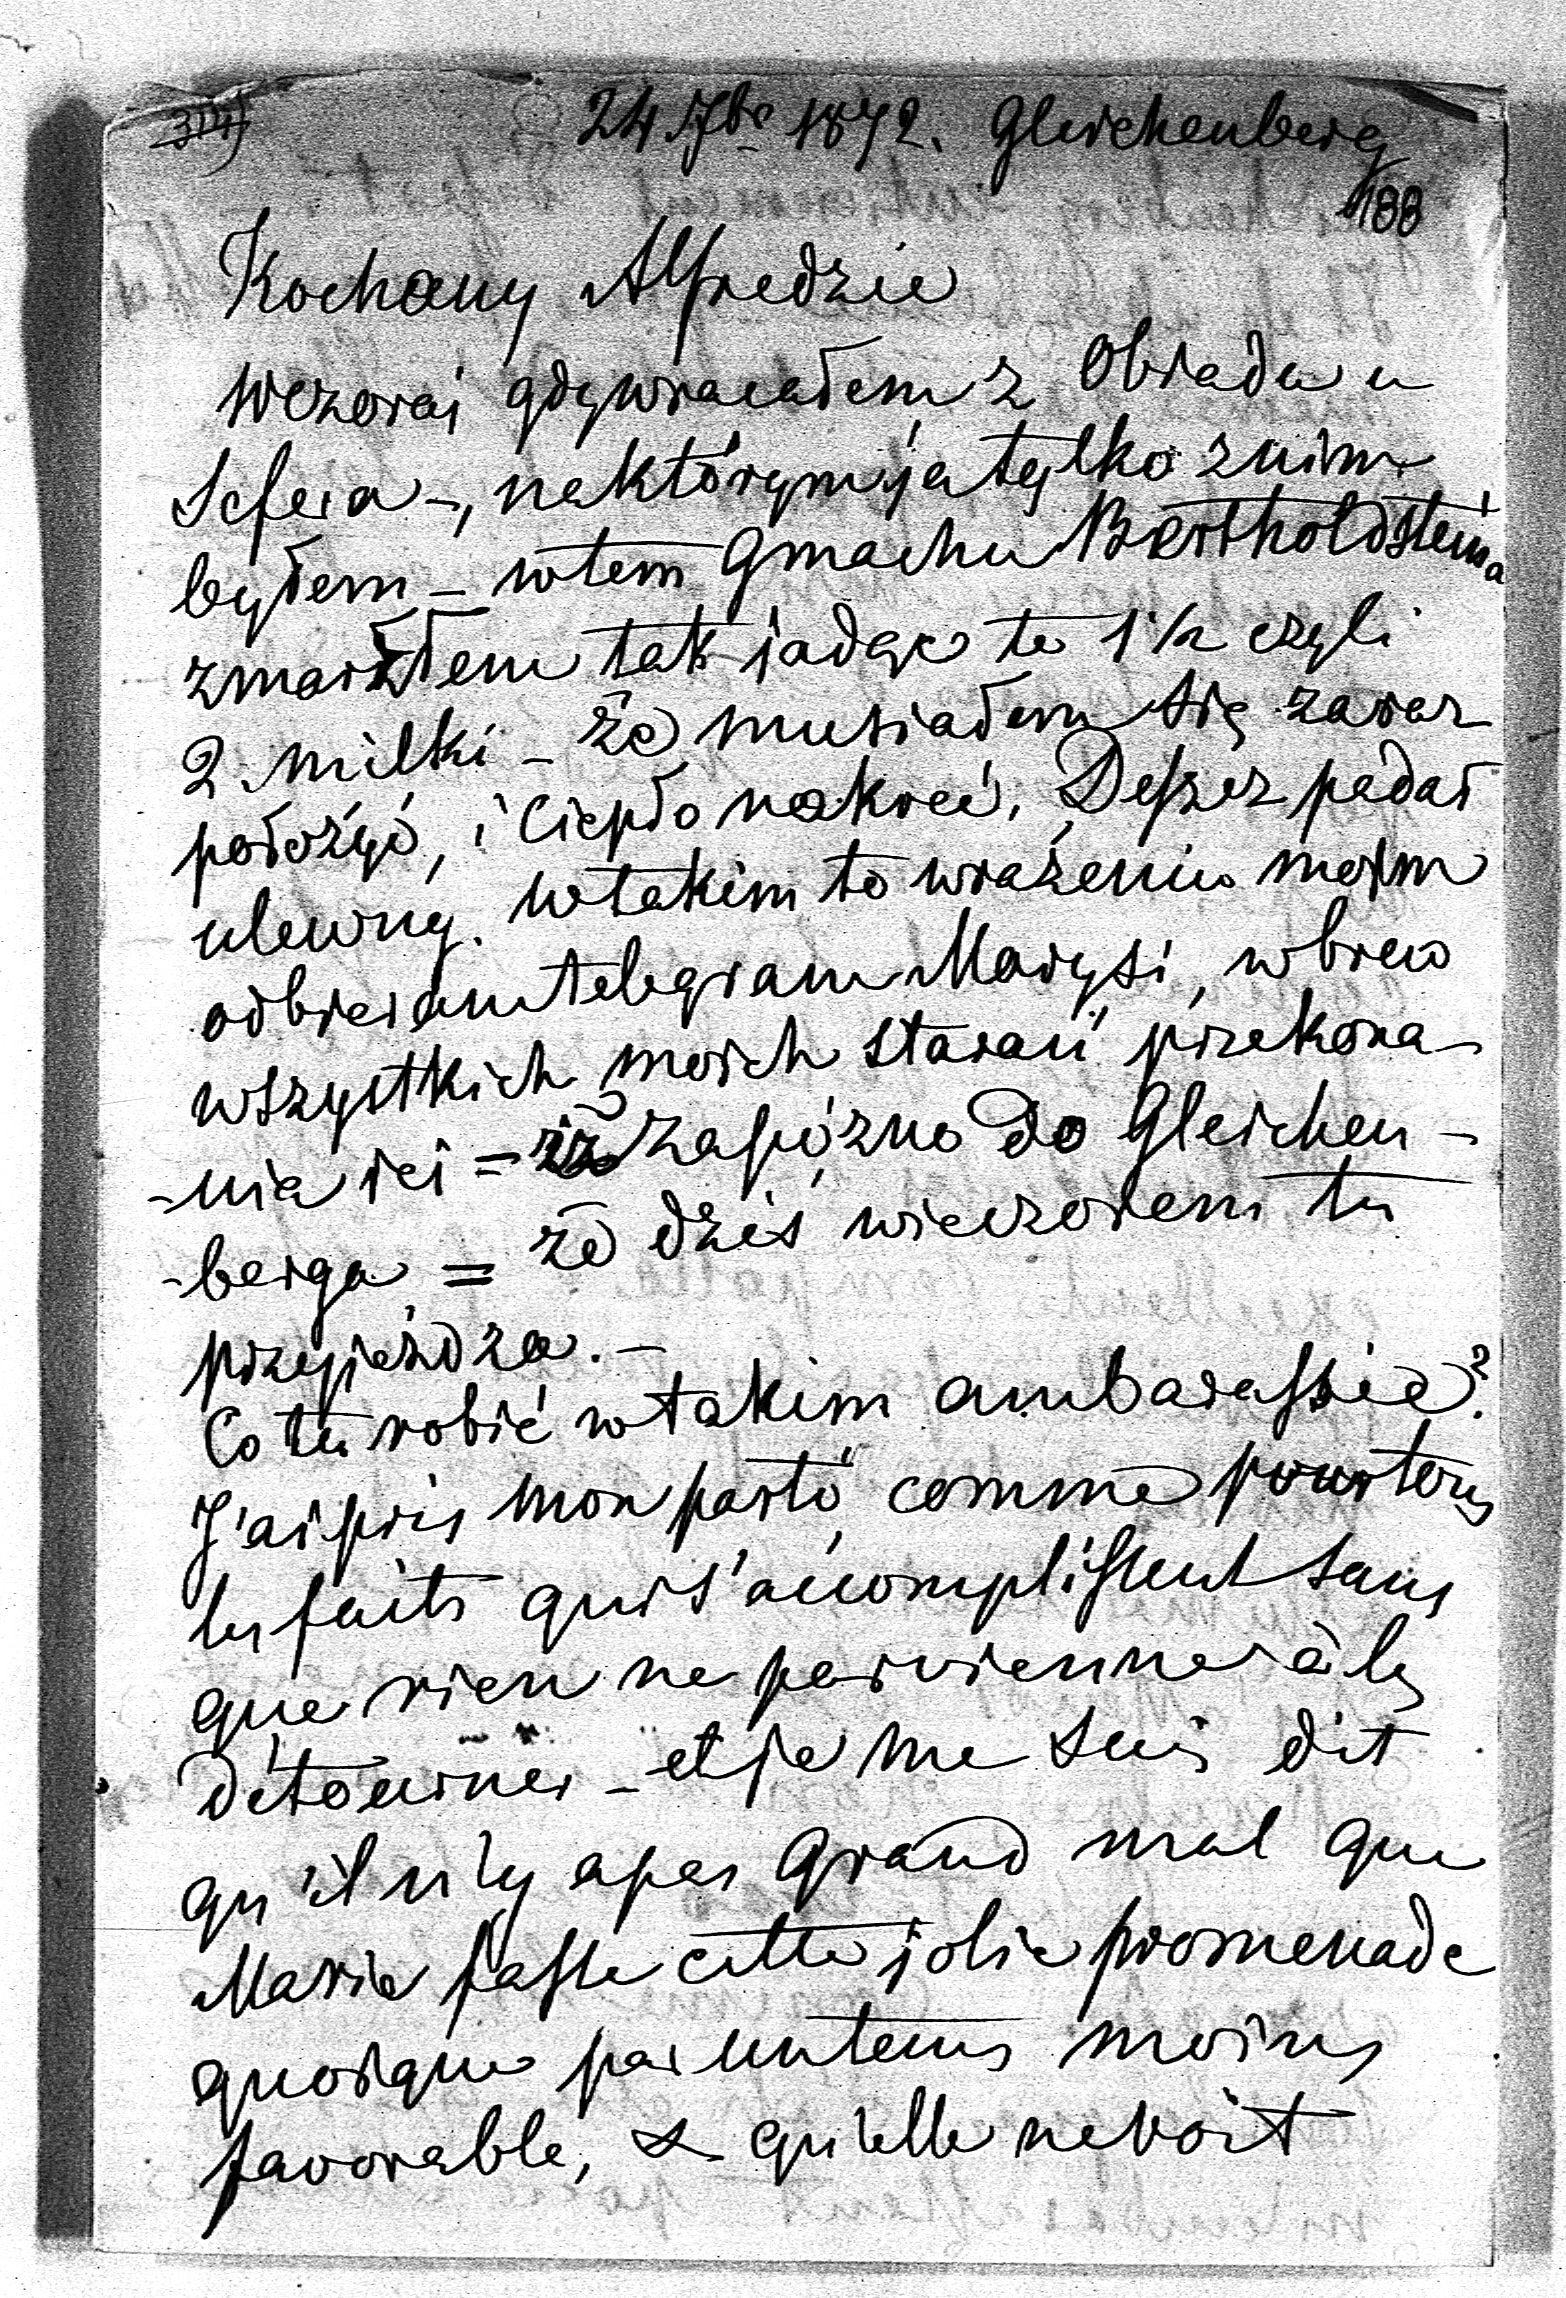 314)
24 7br 1872. Gleichenberg
188
Kochany Alfredzie
Wczoraj gdy wracałem z Obiadu u
Scfera-, na którym ja tylko z nim
byłem - w tem Gmachu Bertholdsteina
zmarzłem tak jadąc te 1½ czyli
2. milki - że musiałem się zaraz
położyć, i Ciepło nakrcć, Deszcz padał
ulewny. W takim to wrażeniu mojm
odbieram telegram Marysi, wbrew
wszystkich moich starań przekona-
-nia jej = iż zapózno do Gleichen-
-berga = że dziś wieczorem tu
przyjeżdza. -
Co tu robić w takim ambarassie?
J'ai pris mon parti, comme pour tous
les faits qui s'accomplissent sans
que rien ne parvienne à les
détourner - et je me suis dit
qu'il n'y a pas grand mal que
Marie fasse cette jolie promenade
quoique par un tems moins
favorable, & qu'elle ne voit